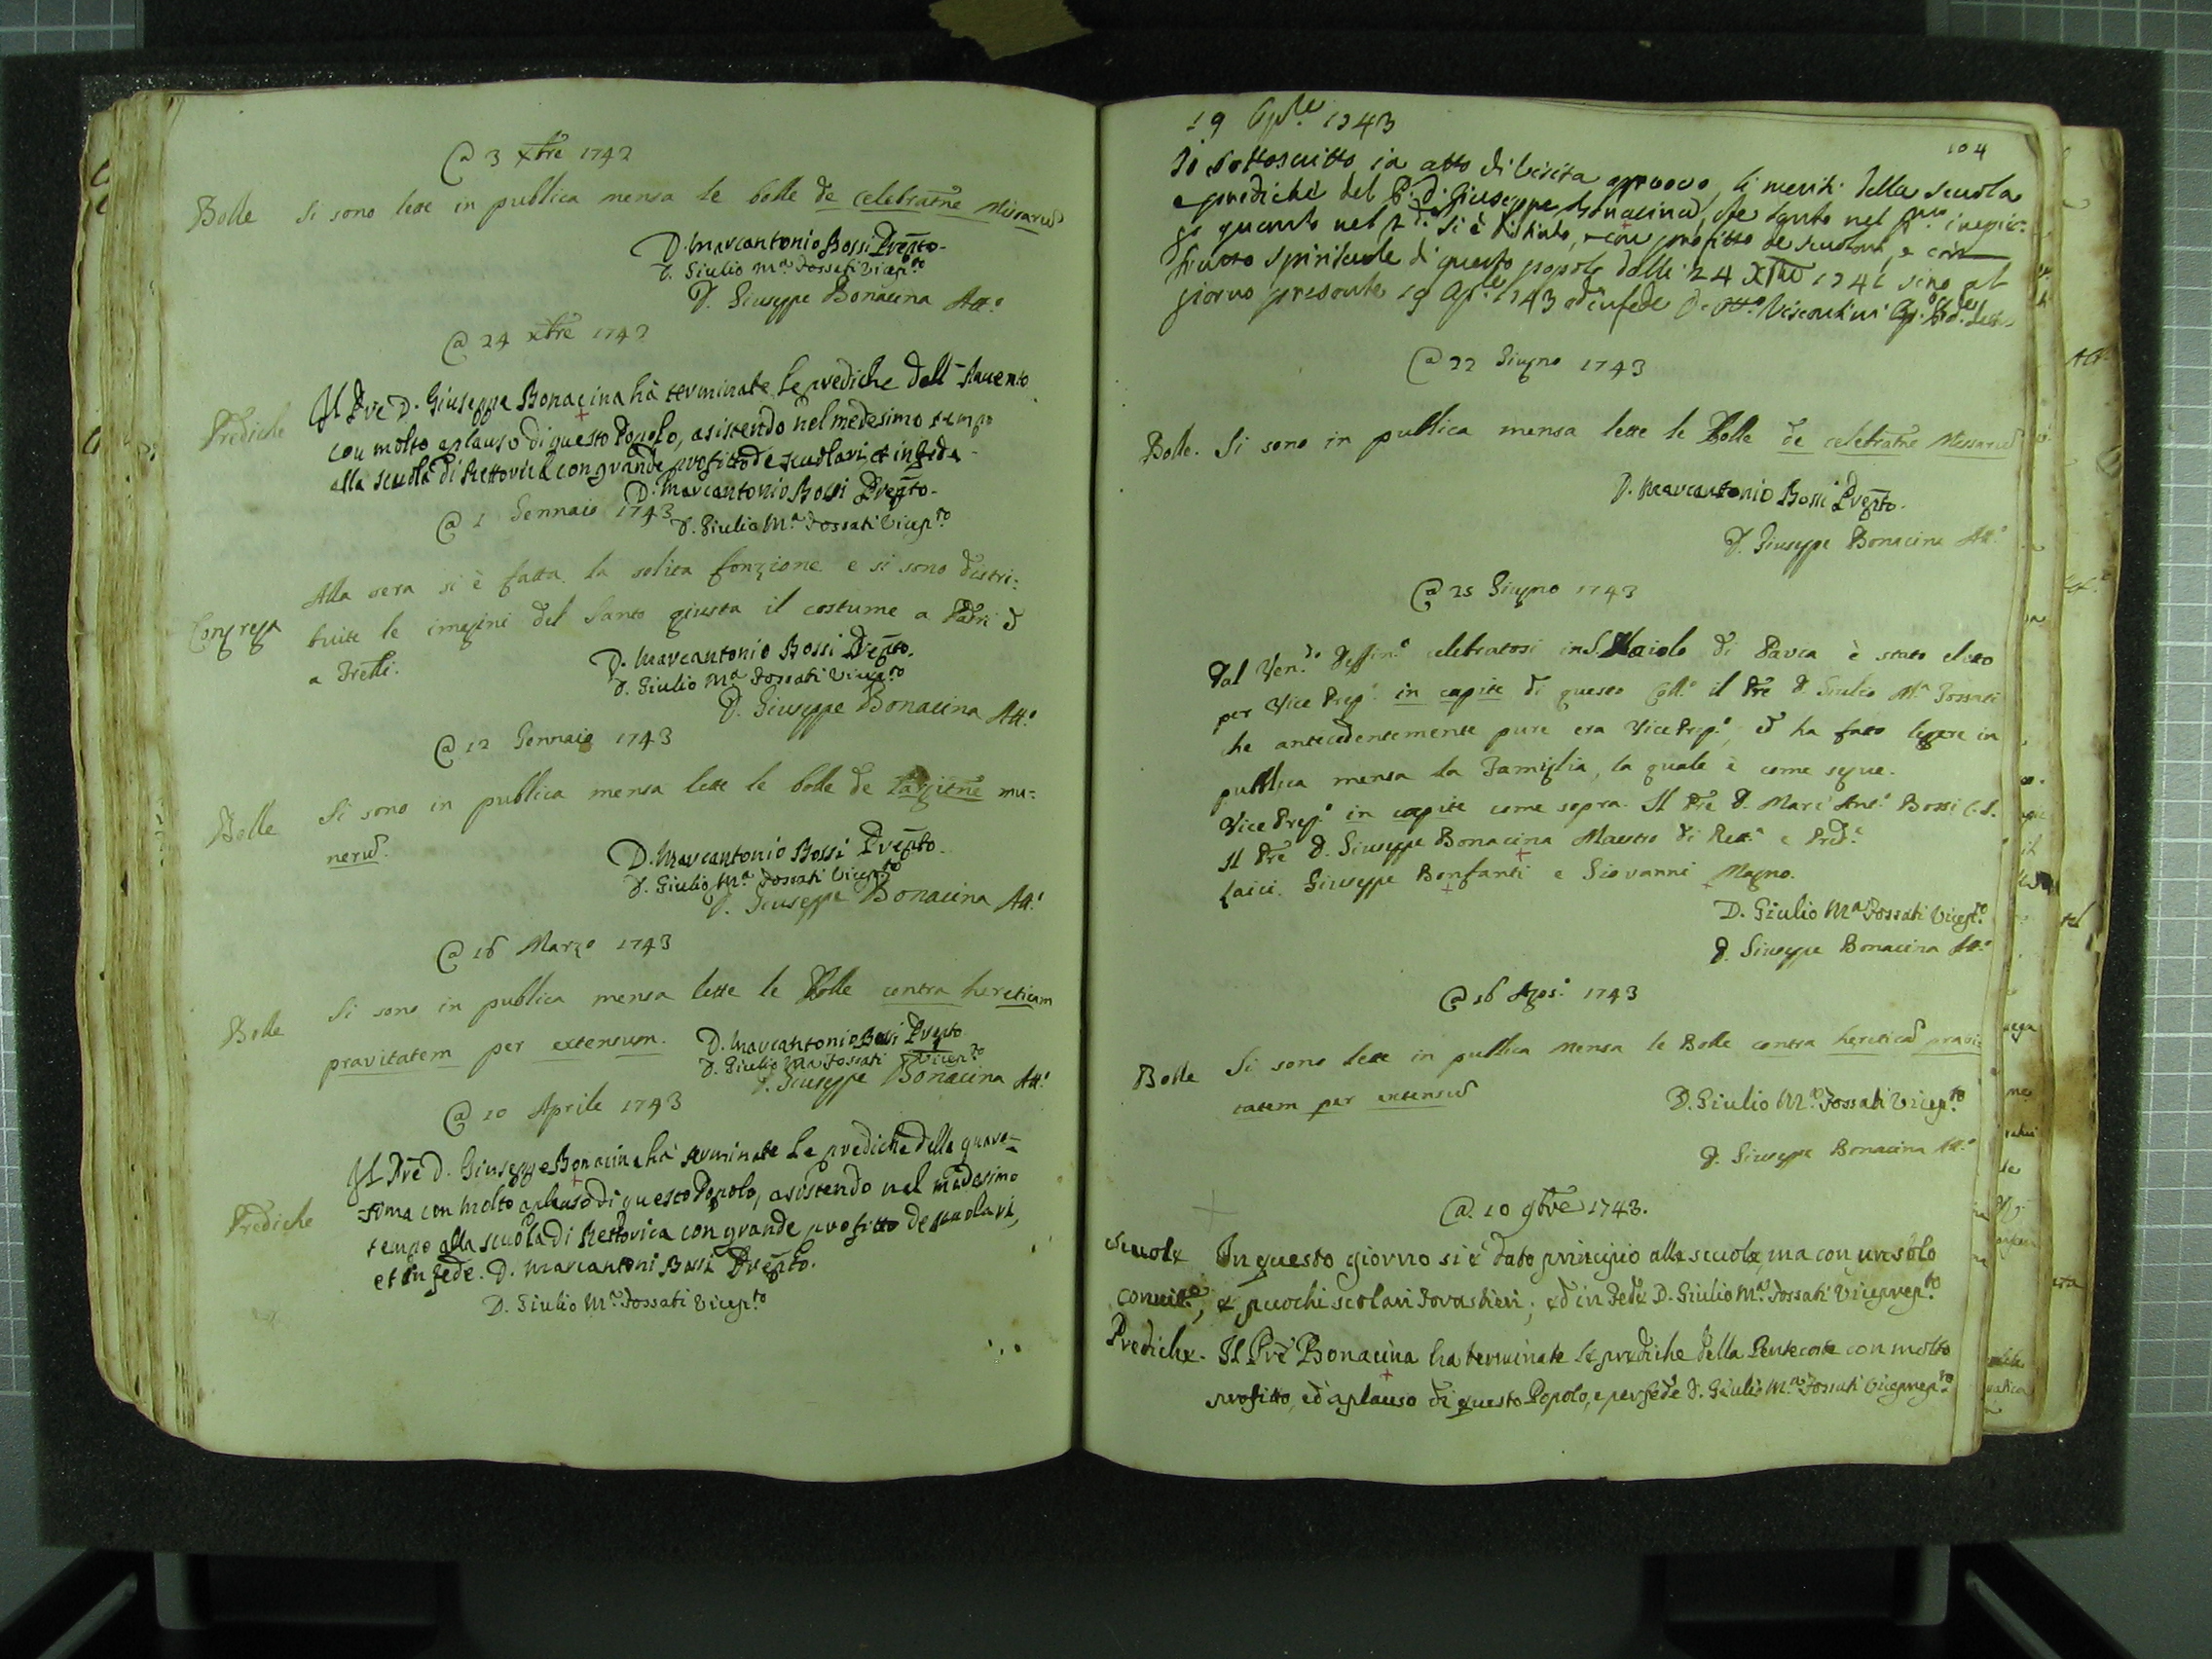 @ 3 Xbre 1742
Bolle Si sono lette in publica mensa le bolle de celebratne Missarũ
D. Marcantonio Bossi Prepto.
D. Giulio Ma. Fossati Vicepto
D. Giuseppe Bonacina Att.o
@ 24 xbre 1742
Prediche Il Pre D. Giuseppe Bonacina hà terminate le prediche dell'Avento
con molto aplauso di questo Popolo, asistendo nel medesimo tempo
alla scuola di Rettorica con grande profitto de scuolari, et in fede.
D. Marcantonio Bossi Prepto.
@ 1 Gennaio 1743
D. Giulio Ma. Fossati Vicepto
Alla sera si è fatta la solita fonzione e si sono distri:
Congrega buite le imagini del Santo giusta il costume a Padri e
a Frelli.
D. Marcantonio Bossi Prepto.
D. Giulio Ma Fossati Vicepto
D. Giuseppe Bonacina Att.o
@ 12 Gennaio 1743
Bolle Si sono in publica mensa lette le bolle de largitne mu:
nerũ.
D. Marcantonio Bossi Prepto.
D. Giulio Ma. Fossati Vicepto
D. Giuseppe Bonacina Att.o
@ 16 Marzo 1743
Bolle Si sono in publica mensa lette le Bolle contra hereticam
pravitatem per extensum.
D. Marcantonio Bossi Prepto
D. Giulio Ma Fossati Vicepto
D. Giuseppe Bonacina Att.o
@ 10 Aprile 1743
Prediche Il Pre D. Giuseppe Bonacina hà terminate le prediche della quare=
sima con molto aplauso di questo Popolo, asistendo nel medesimo
tempo alla scuola di Rettorica con grande profitto de scuolari,
et in fede. D. Marcantoni Bossi Prepto.
D. Giulio Ma. Fossati Vicepto
104
19 Aple 1743
Io sottoscritto in atto di visita approvo, li meriti della scuola
e prediche del P. D. Giuseppe Bonacina, che tanto nel pmo
quanto nel 2do si è distinto, con profitto de scuolari, e con
frutto spirituale di questo popolo dalli 24 Xbre 1741 sino al
giorno presente 19 Aple 1743 ed in fede D. Visconti
@ 22 Giugno 1743
Bolle. Si sono in publica mensa lette le Bolle de celebratne Missarũ
D. Marcantonio Bossi Prepto.
D. Giuseppe Bonacina Att.o
@ 25 Giugno 1743
Dal Ven.do Deffin.o celebratosi in S. Maiolo di Pavia è stato eletto
per Vice Prep.o in capite di questo Coll.o il Pre D. Giulio M.a Fossati
che antecedentemente pure era Vice Prep.o, ed ha fatto leggere in
publica mensa la Famiglia, la quale è come segue.
Vice Prep.o in capite come sopra. Il Pre D. Marc' Ant.o Bossi C.S.
Il Pre D. Giuseppe Bonacina Maestro di Rett.a e Pred.e
Laici. Giuseppe Bonfanti e Giovanni Magno.
D. Giulio Ma. Fossati Vicepto
D. Giuseppe Bonacina Att.o
@ 16 Agos.o 1743
Bolle Si sono lette in publica mensa le Bolle contra hereticã pravi
tatem per extensũ
D. Giulio Ma. Fossati Vicepto
D. Giuseppe Bonacina Att.o
@. 10 9bre 1743.
Scuole In questo giorno si è dato principio alle scuole, ma con un solo
convitt.e, e puochi scolari Forastieri; ed in Fede D. Giulio Ma. Fossati Viceprepto
Prediche. Il Pre Bonacina ha terminate le prediche della Pentecoste con molto
profitto, ed aplauso di questo Popolo, e per fede D. Giulio Ma. Fossati Viceprepto